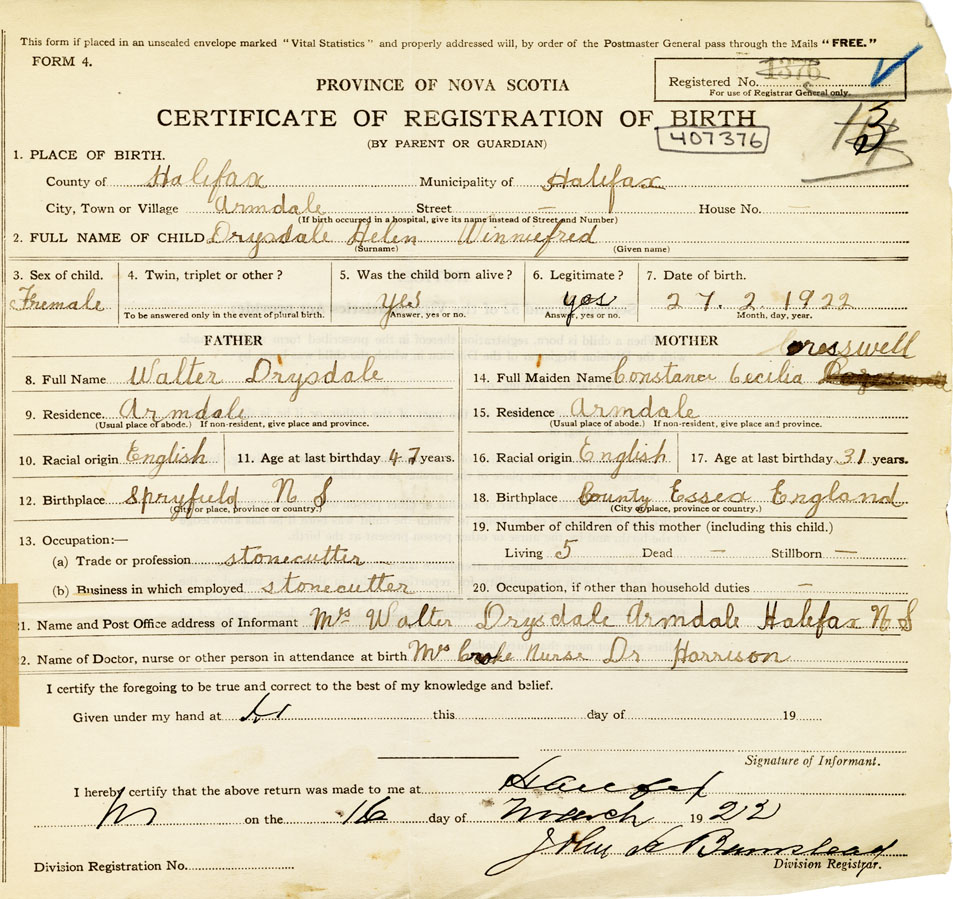 This form if placed in an unsealed envelope marked "Vital Statistics" and properly addressed will, by order of the Postmaster General pass through the Mails "FREE."
FORM 4.
Registered No. 1376
For use of Registrar General only.
PROVINCE OF NOVA SCOTIA
CERTIFICATE OF REGISTRATION OF BIRTH
(BY PARENT OR GUARDIAN)
407376
1. PLACE OF BIRTH.
County of Halifax Municipality of Halifax
City, Town or Village Armdale Street — House No. —
(If birth occurred in a hospital, give its name instead of Street and Number)
2. FULL NAME OF CHILD Drysdale Helen Winniefred
(Surname) (Given name)
3. Sex of child. 4. Twin, triplet or other? 5. Was the child born alive? 6. Legitimate? 7. Date of birth.
Fremale yes yes 27. 2. 1922
To be answered only in the event of plural birth. Answer, yes or no. Answer, yes or no. Month, day, year.
FATHER MOTHER Cresswell
8. Full Name Walter Drysdale 14. Full Maiden Name Constance Cecilia
9. Residence. Armdale 15. Residence Armdale
(Usual place of abode.) If non-resident, give place and province. (Usual place of abode.) If non-resident, give place and province.
10. Racial origin English 11. Age at last birthday 47 years. 16. Racial origin English 17. Age at last birthday 31 years.
12. Birthplace Spryfield N S 18. Birthplace County Essex England
(City or place, province or country.) (City or place, province or country.)
13. Occupation:— 19. Number of children of this mother (including this child.)
(a) Trade or profession stonecutter Living 5 Dead — Stillborn —
(b) Business in which employed stonecutter 20. Occupation, if other than household duties —
21. Name and Post Office address of Informant Mrs Walter Drysdale Armdale Halifax N S
22. Name of Doctor, nurse or other person in attendance at birth Mrs Croke Nurse Dr Harrison
I certify the foregoing to be true and correct to the best of my knowledge and belief.
Given under my hand at this day of 19
Signature of Informant.
I hereby certify that the above return was made to me at Halifax
on the 16 day of March 1922
John A Bumstead
Division Registration No. Division Registrar.